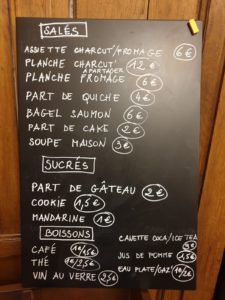 SALÉS
ASSIETTE CHARCUT'/FROMAGE 6€
PLANCHE CHARCUT' 12€
A PARTAGER
PLANCHE FROMAGE 6€
PART DE QUICHE 4€
BAGEL SAUMON 6€
PART DE CAKE 2€
SOUPE MAISON 3€
SUCRÉS
PART DE GÂTEAU 2€
COOKIE 1,5€
MANDARINE 1€
BOISSONS
CAFÉ 1€/1,5€
THÉ 1€/2,5€
VIN AU VERRE 2,5€
CANETTE COCA/ICE TEA
JUS DE POMME 1,5€
EAU PLATE/GAZ' 1€/2€